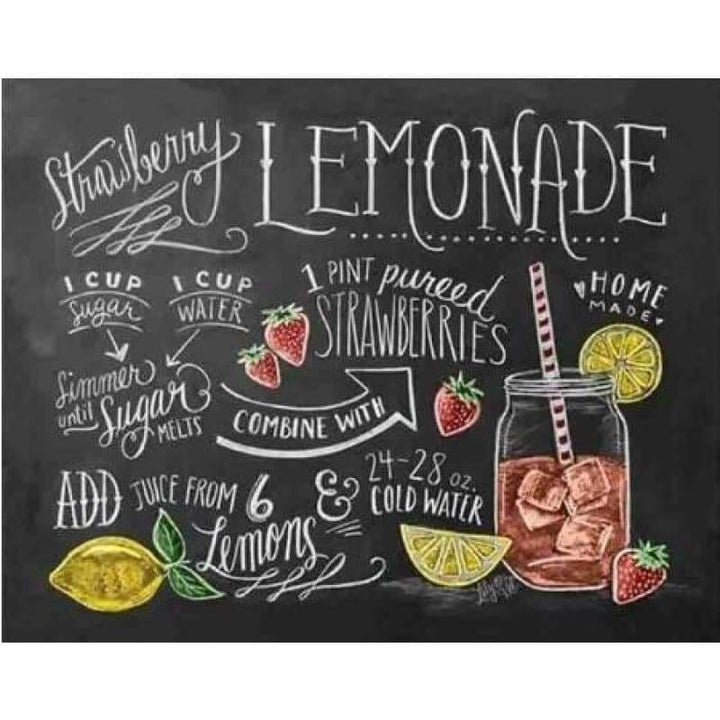 Strawberry LEMONADE
1 CUP Sugar
1 CUP WATER
Simmer until Sugar MELTS
COMBINE WITH
1 PINT pureed
STRAWBERRIES
HOME
MADE
ADD JUICE FROM 6 Lemons
& 24-28 oz.
COLD WATER